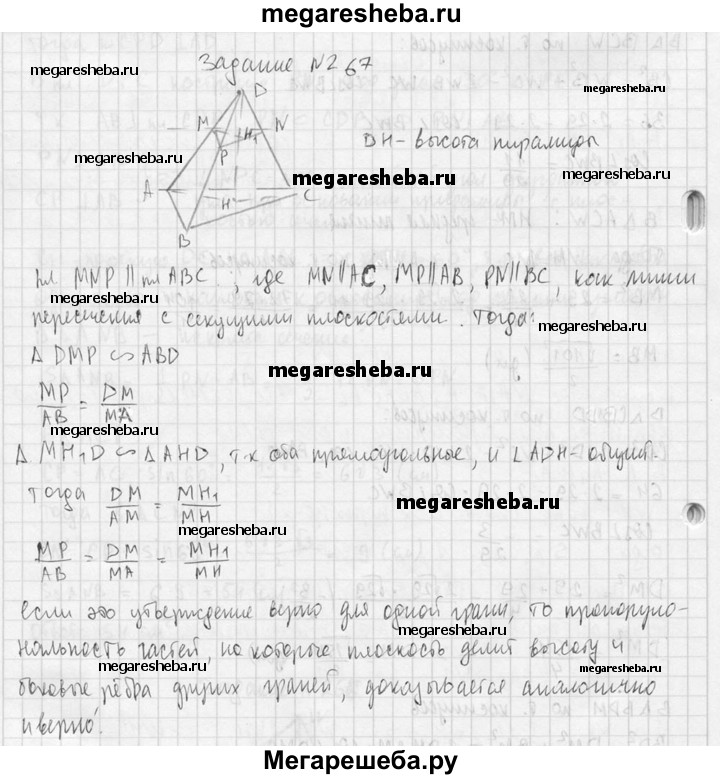 megaresheba.ru
Задание №267
megaresheba.ru
megaresheba.ru
D
M H₁ N
P
DH - высота пирамиды
megaresheba.ru
megaresheba.ru
A H C
B
пл. MNP || пл ABC, где MN||AC, MP||AB, PN||BC, как линии
megaresheba.ru
пересечения с секущими плоскостями. Тогда:
megaresheba.ru
Δ DMP ∽ ABD
megaresheba.ru
MP/AB = DM/MA
megaresheba.ru
Δ MH₁D ∽ Δ AHD, т.к оба прямоугольные, и ∠ADH - общий.
Тогда DM/AM = MH₁/MH
megaresheba.ru
megaresheba.ru
megaresheba.ru
MP/AB = DM/MA = MH₁/MH
megaresheba.ru
если это утверждение верно для одной грани, то пропорцио-
megaresheba.ru
нальность частей, на которые плоскость делит высоту и
megaresheba.ru
megaresheba.ru
боковые рёбра других граней, доказывается аналогично
megaresheba.ru
и верно.
megaresheba.ru
Мегарешеба.ру